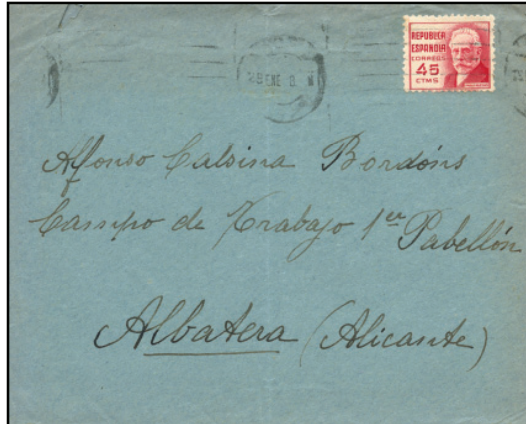 REPUBLICA
ESPAÑOLA
CORREOS
45
CTMS
28 ENE 8. M
Alfonso Calsina Bordóns
Campo de Trabajo 1er Pabellón
Albatera (Alicante)